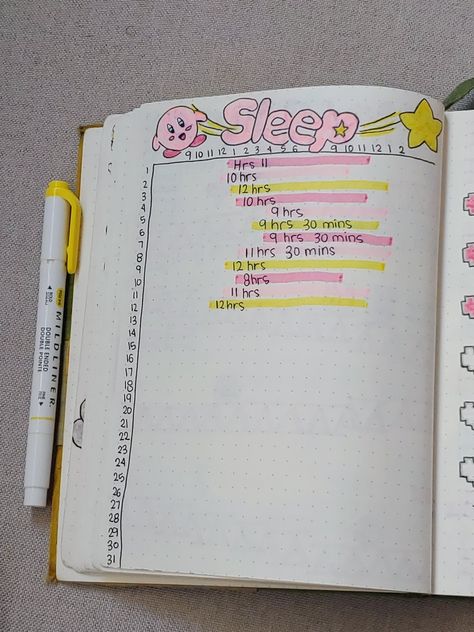 Sleep
9 10 11 12 1 2 3 4 5 6 7 8 9 10 11 12 1 2
1 Hrs 11
2 10 hrs
3 12 hrs
4 10 hrs
5 9 hrs
6 9 hrs 30 mins
7 9 hrs 30 mins
8 11 hrs 30 mins
9 12 hrs
10 8hrs
11 11 hrs
12 12hrs
13
14
15
16
17
18
19
20
21
22
23
24
25
26
27
28
29
30
31
MILDLINER
DOUBLE ENDED
DOUBLE POINTE